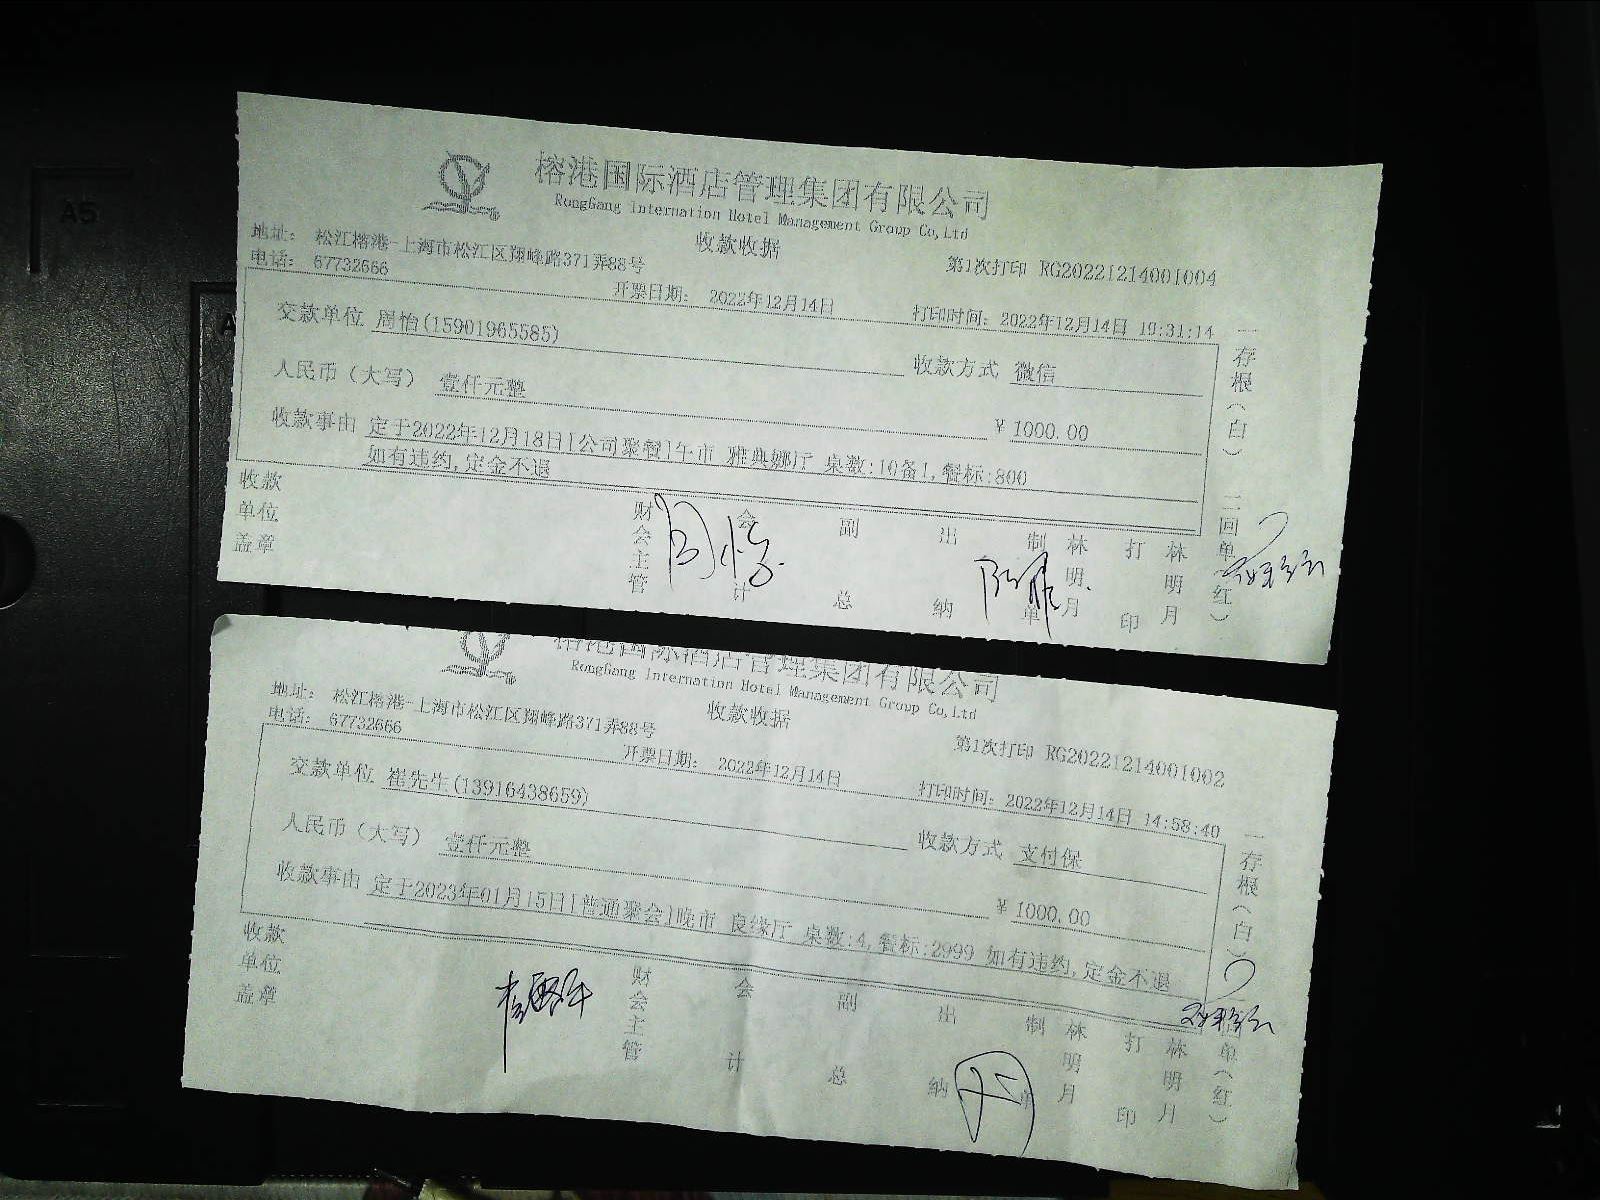 A5
榕港国际酒店管理集团有限公司
RongGang Internation Hotel Management Group Co,Ltd
收款收据
地址: 松江榕港-上海市松江区翔峰路371弄88号
电话: 67732666
第1次打印 RG20221214001004
开票日期: 2022年12月14日
打印时间: 2022年12月14日 19:31:14
交款单位 周怡(15901965585)
收款方式 微信
人民币(大写) 壹仟元整
¥ 1000.00
收款事由 定于2022年12月18日[公司聚餐]午市 雅典娜厅 桌数:10备1,餐标:800
如有违约,定金不退
收款单位盖章
财会主管
会计
副总
出纳
制单
林明月
打印
林明月
一存根(白)
二回单(红)
周怡
榕港国际酒店管理集团有限公司
RongGang Internation Hotel Management Group Co,Ltd
收款收据
地址: 松江榕港-上海市松江区翔峰路371弄88号
电话: 67732666
第1次打印 RG20221214001002
开票日期: 2022年12月14日
打印时间: 2022年12月14日 14:58:40
交款单位 崔先生(13916438659)
收款方式 支付保
人民币(大写) 壹仟元整
¥ 1000.00
收款事由 定于2023年01月15日[普通聚会]晚市 良缘厅 桌数:4,餐标:2999 如有违约,定金不退
收款单位盖章
财会主管
会计
副总
出纳
制
林明月
打印
林明月
一存根(白)
单(红)